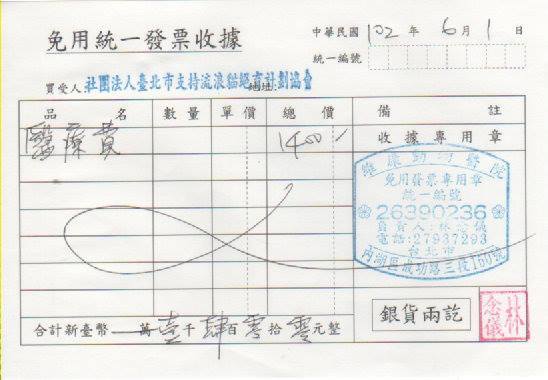 免用統一發票收據
中華民國 102 年 6 月 1 日
統一編號
買受人:社團法人臺北市支持流浪貓絕育計劃協會 地址:
品名 數量 單價 總價 備註
醫療費 1400 收據專用章
動物醫院
免用發票專用章
統一編號
26390236
負責人:林念儀
電話:27937293
台北市
內湖區成功路三段160號
合計新臺幣 萬壹千肆百零拾零元整
銀貨兩訖
林念儀